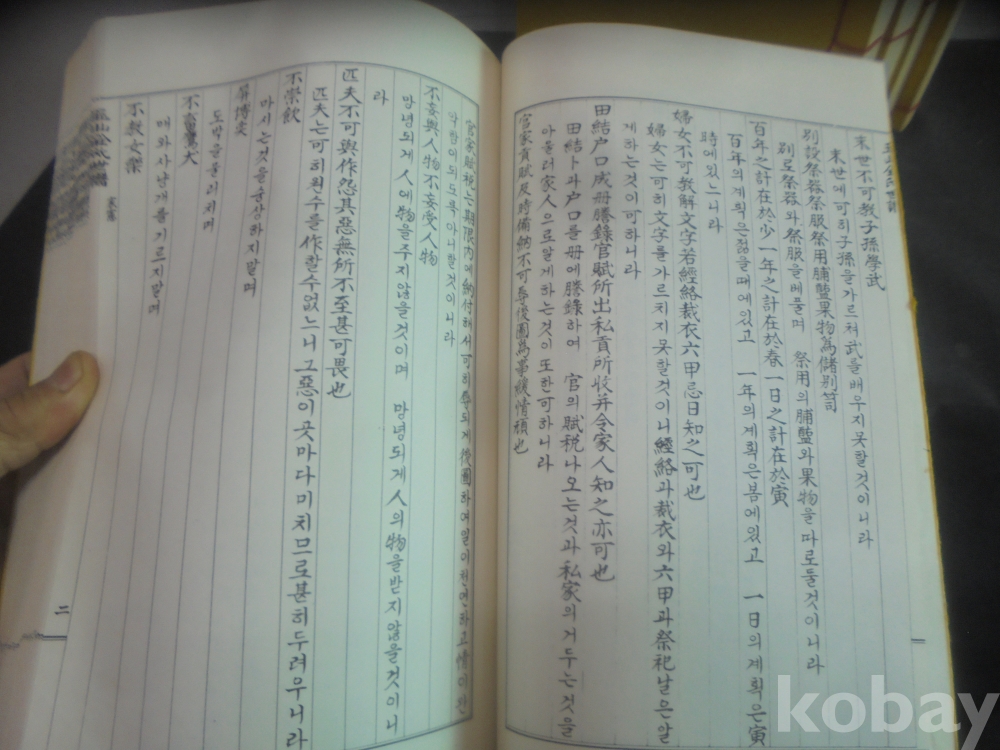 來世不可敎子孫學武
來世에可히子孫을가르쳐武를배우지못할것이니라
別設祭器祭服祭用脯醢果物爲儲別笥
別로祭器와祭服을베풀며 祭用의脯醢와果物을따로둘것이니라
百年之計在於少一年之計在於春一日之計在於寅
百年의계획은젊을때에있고 一年의계획은봄에있고 一日의계획은寅
時에있느니라
婦女不可敎解文字若經絡裁衣六甲忌日知之可也
婦女는可히文字를가르치지못할것이니經絡과裁衣와六甲과祭祀날은알
게하는것이可하니라
田結户口成册謄錄官賦所出私貢所收并令家人知之亦可也
田結卜과户口를册에謄錄하여 官의賦税나오는것과私家의거두는것을
아울러家人으로알게하는것이또한可하니라
官家貢賦及時備納不可辱後
官家賦税는期限內에納付해서可히辱되게
악함이되도록아니할것이니라
不妄與人物不妄受人物
망녕되게人에物을주지않을것이며 망녕되게人의物을받지않을것이니
라
匹夫不可與作怨其惡無所不至甚可畏也
匹夫는可히원수를作할수없느니그惡이곳마다미치므로甚히두려우니라
不崇飮
마시는것을숭상하지말며
屏博奕
도박을물리치며
不畜鷹犬
매와사냥개를기르지말며
不敎女樂
二
kobay